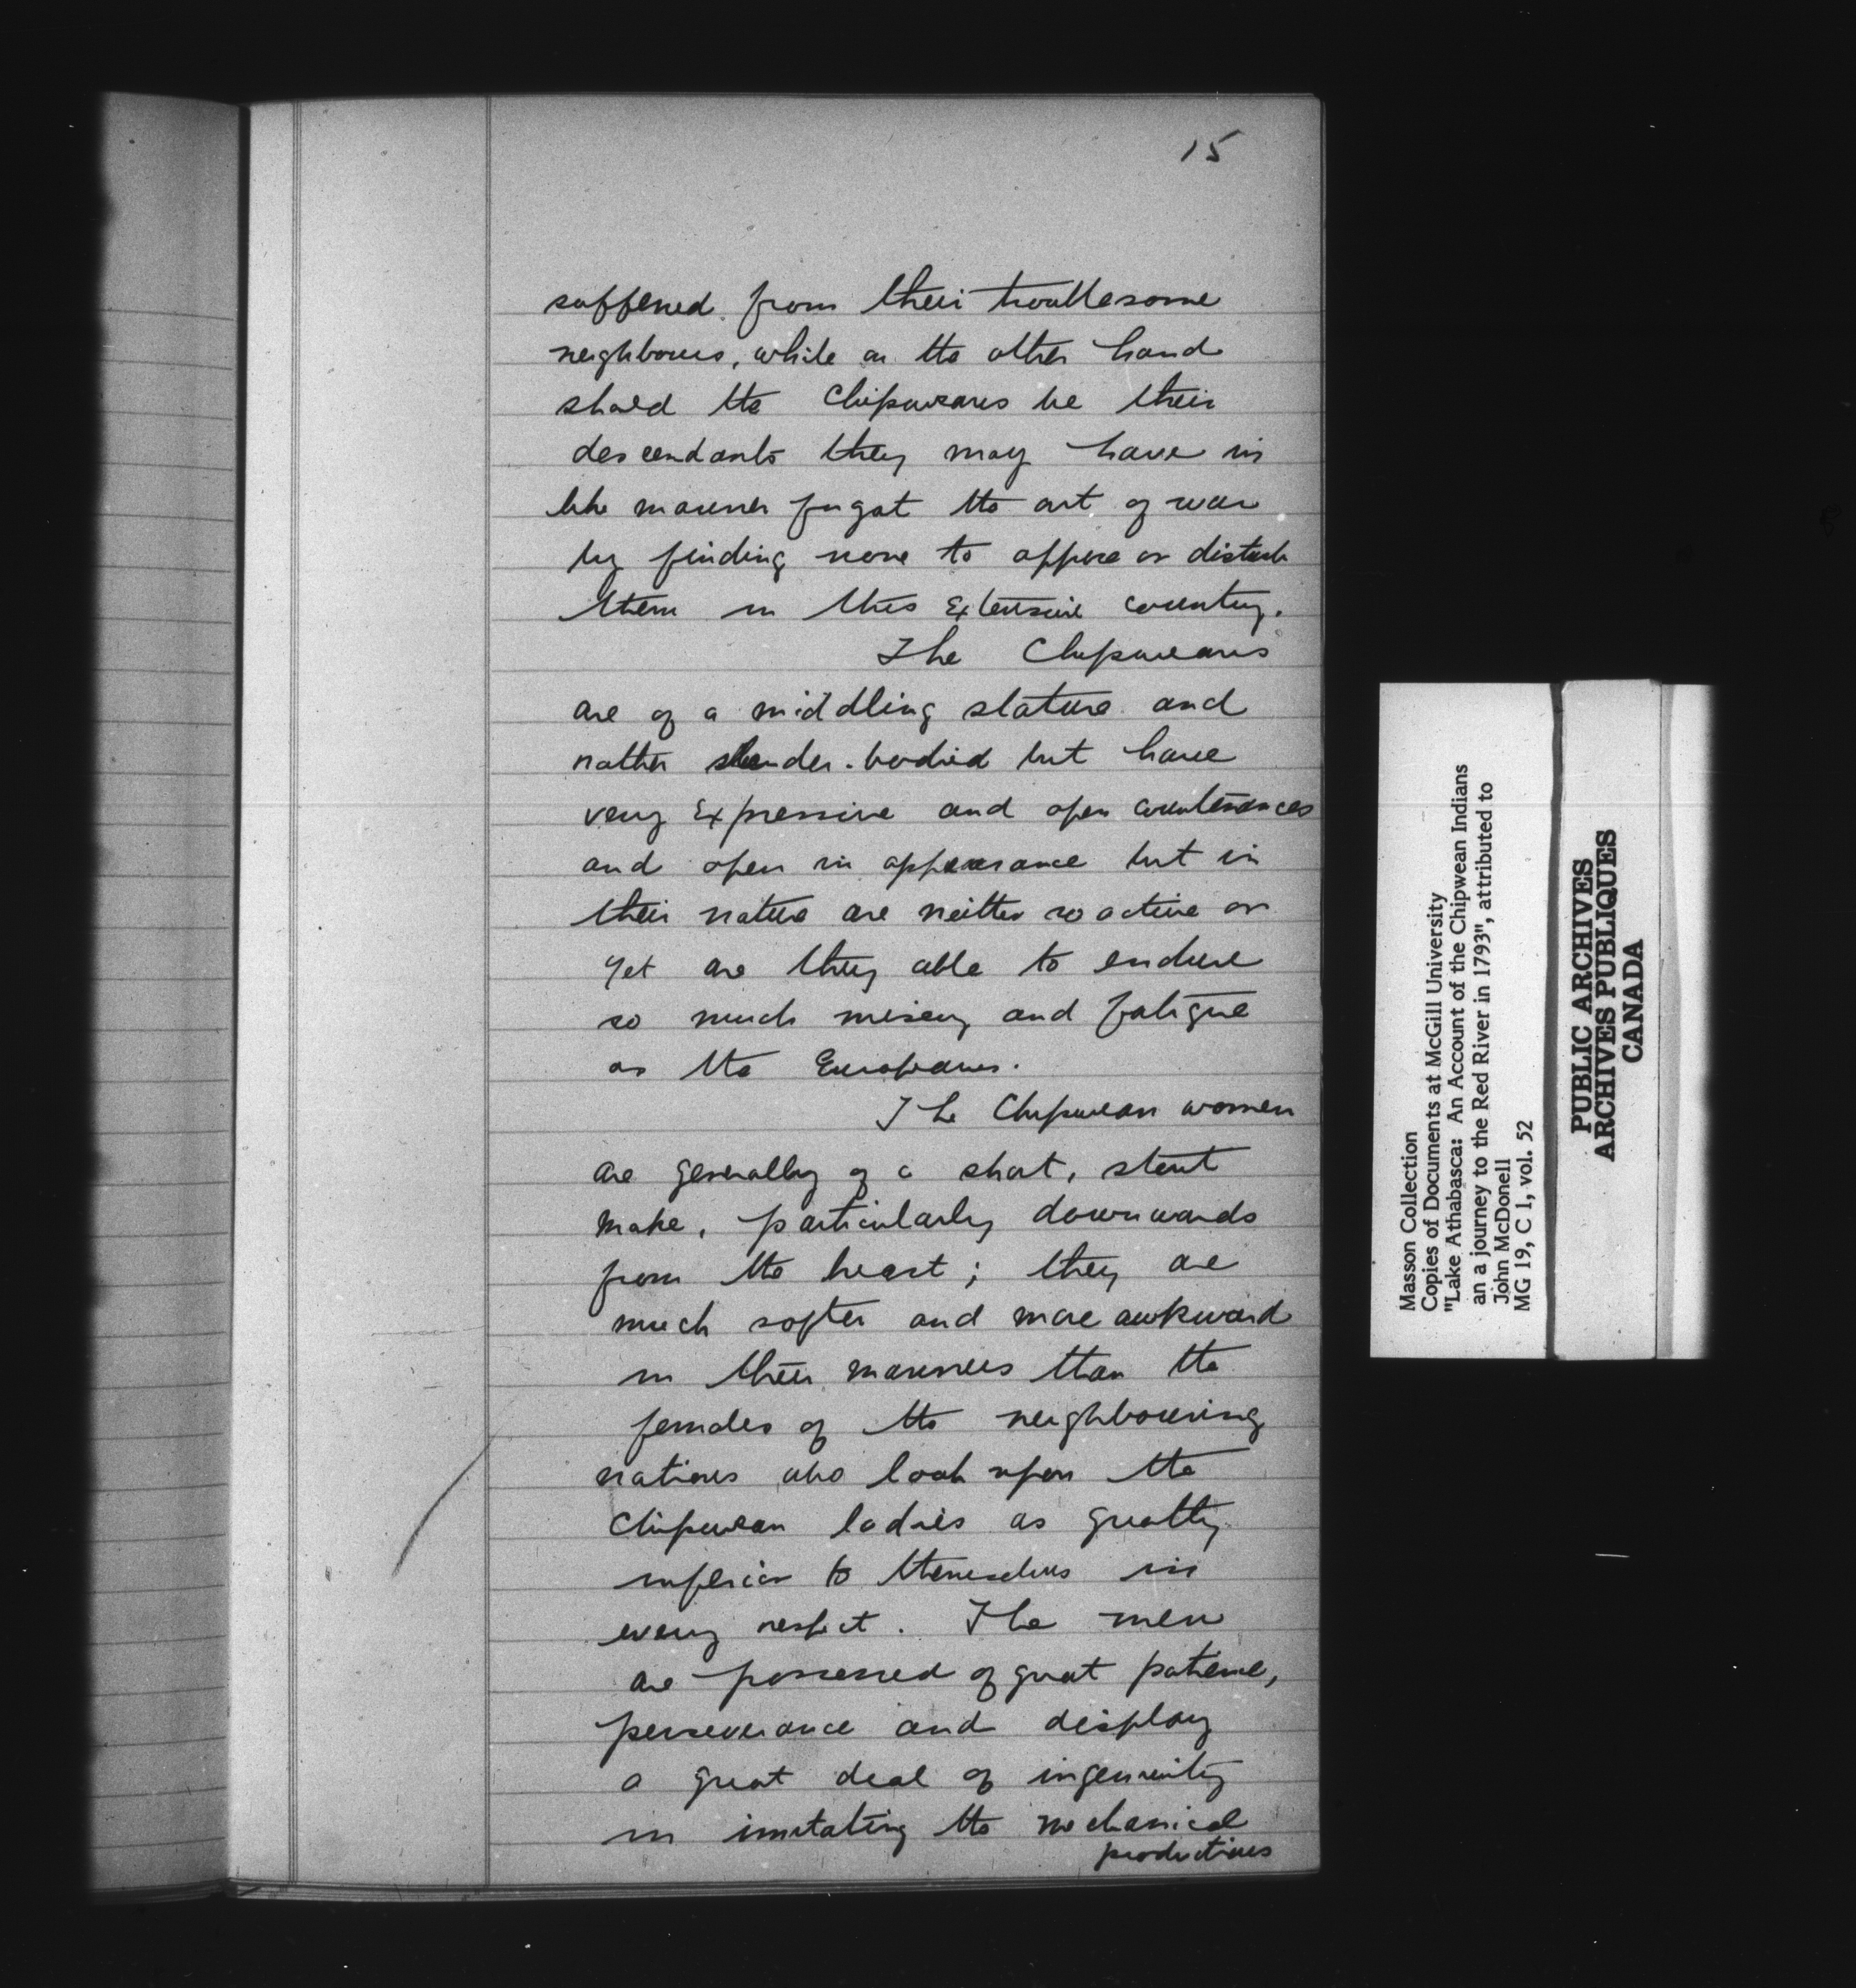 15
suffered from their troublesome
neighbours, while on the other hand
should the Chipweans be their
descendants they may have in
like manner forgot the art of war
by finding none to oppose or disturb
them in this extensive country.
The Chipweans
are of a middling stature and
rather slender-bodied but have
very expressive and open countenances
and open in appearance but in
their nature are neither so active or
yet are they able to endure
so much misery and fatigue
as the Europeans.
The Chipwean women
are generally of a short, stout
make, particularly downwards
from the heart; they are
much softer and more awkward
in their manners than the
females of the neighbouring
nations who look upon the
Chipwean ladies as greatly
inferior to themselves in
every respect. The men
are possessed of great patience,
perseverance and display
a great deal of ingenuity
in imitating the mechanical
productions
Masson Collection
Copies of Documents at McGill University
"Lake Athabasca: An Account of the Chipwean Indians
an a journey to the Red River in 1793", attributed to
John McDonell
MG 19, C 1, vol. 52
PUBLIC ARCHIVES
ARCHIVES PUBLIQUES
CANADA